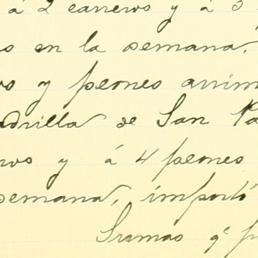 á 2 carreros y á 3
os en la semana,
os y peones arrim
adrilla de San Pa
eros y á 4 peones
semana, importó
Sumas q. p